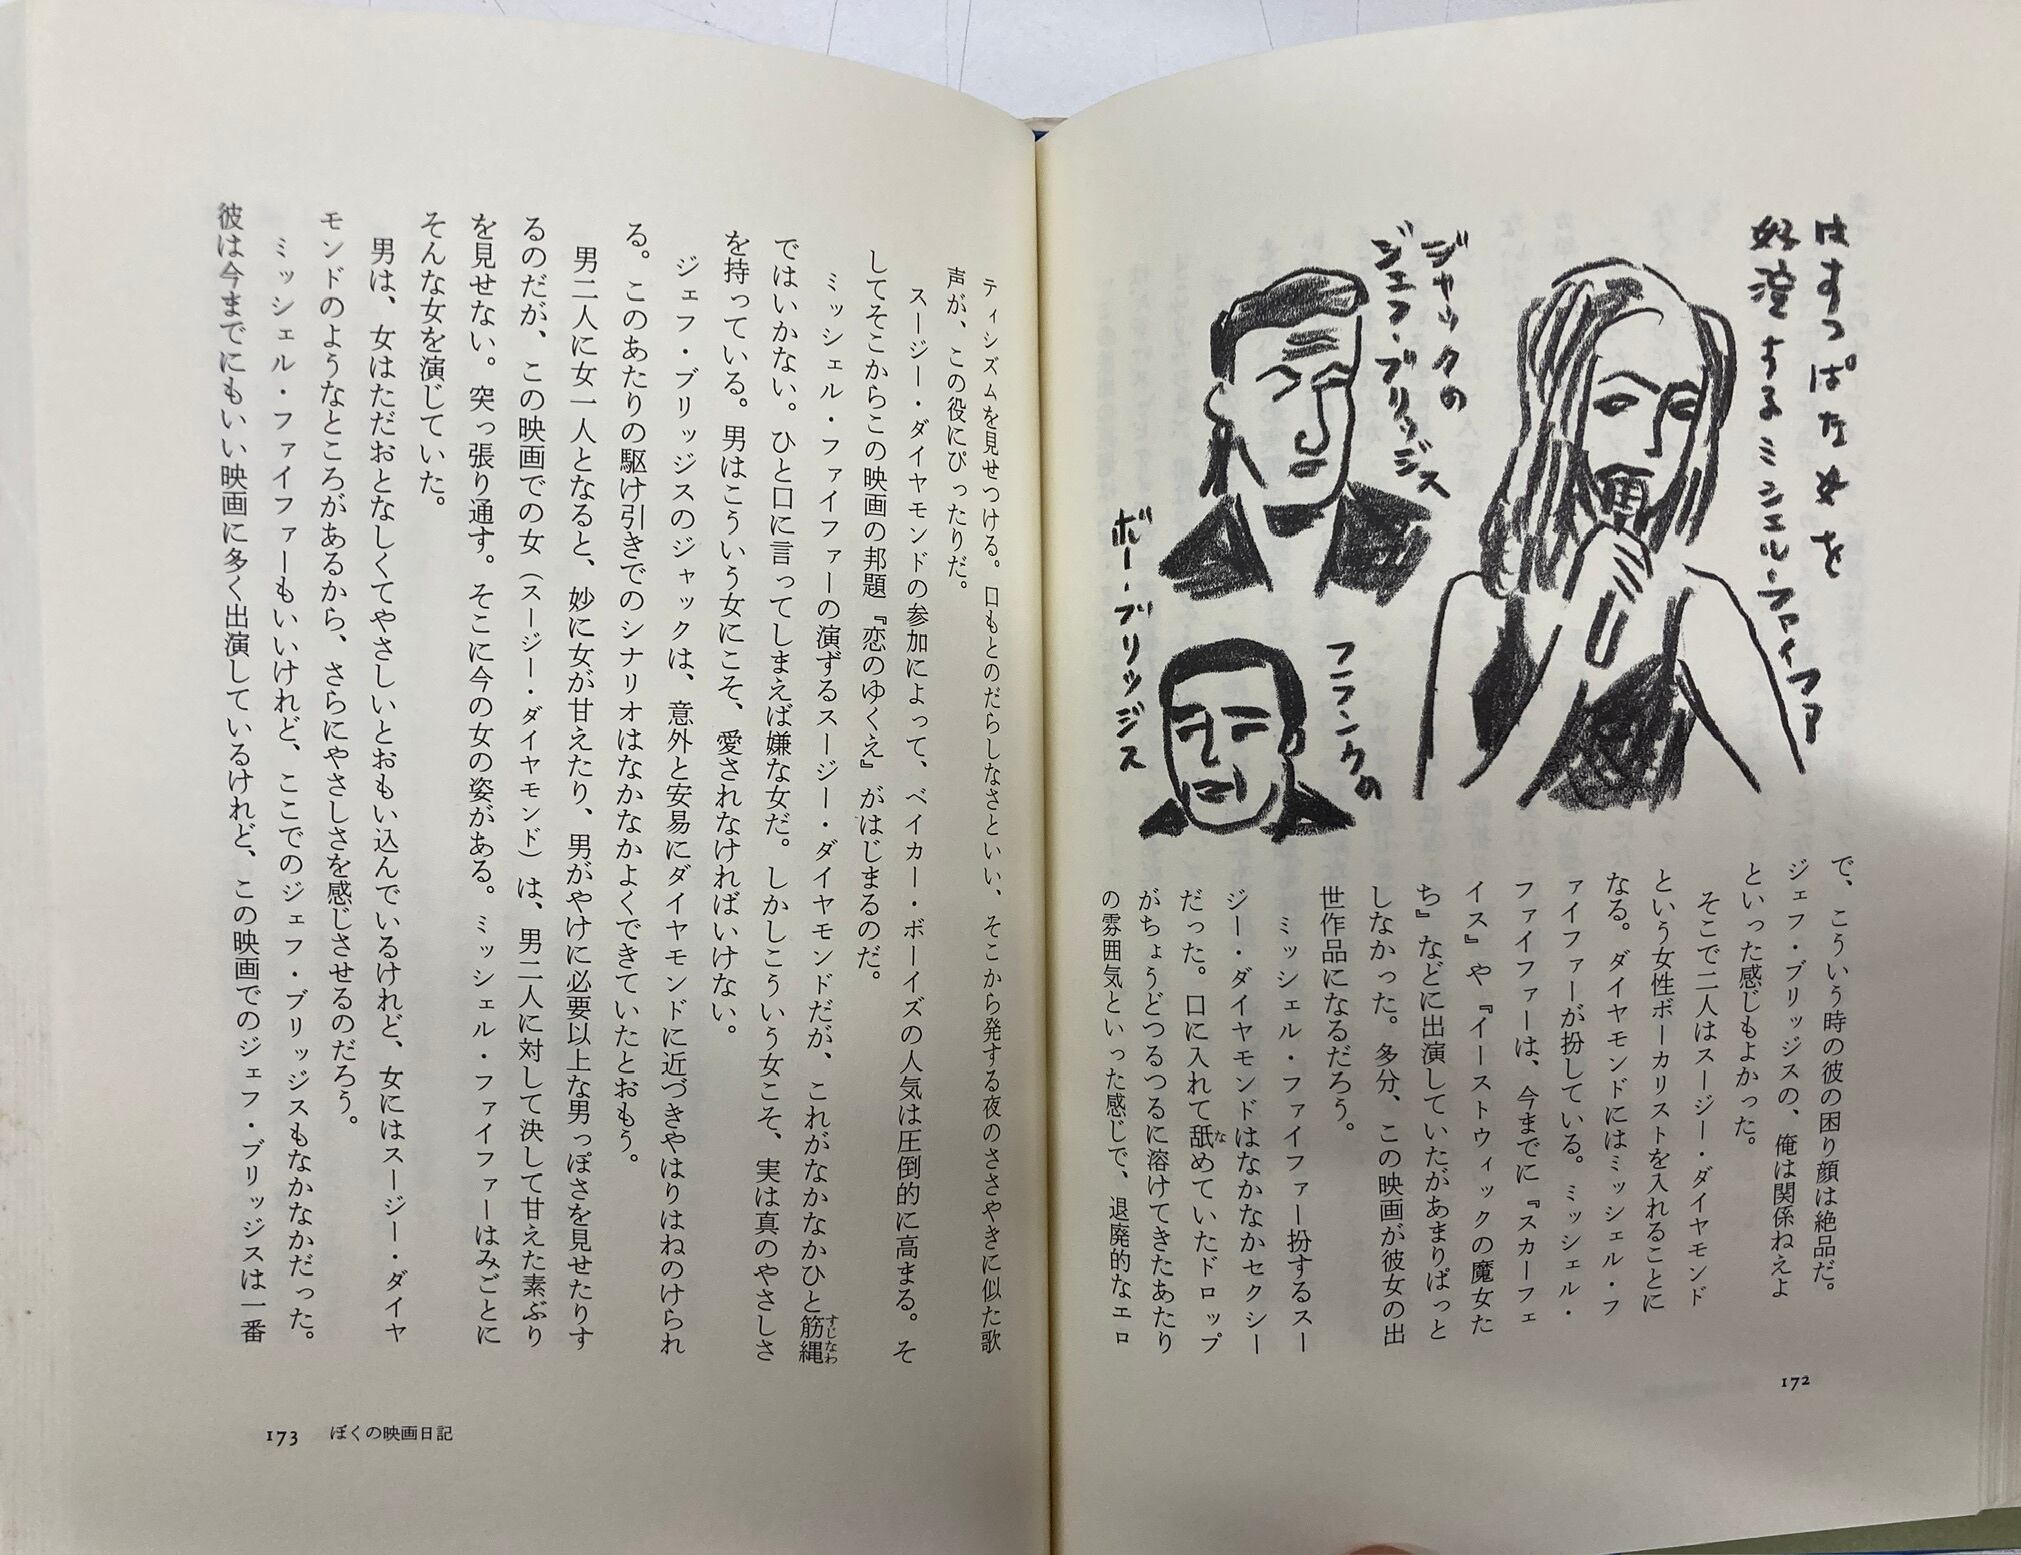 はすっぱな女を
好演するミシェル・ファイファア
ジャックの
ジェフ・ブリッジス
フランクの
ボー・ブリッジス
で、こういう時の彼の困り顔は絶品だ。
ジェフ・ブリッジスの、俺は関係ねえよ
といった感じもよかった。
そこで二人はスージー・ダイヤモンド
という女性ボーカリストを入れることに
なる。ダイヤモンドにはミッシェル・フ
ァイファーが扮している。ミッシェル・
ファイファーは、今までに『スカーフェ
イス』や『イーストウィックの魔女た
ち』などに出演していたがあまりぱっと
しなかった。多分、この映画が彼女の出
世作品になるだろう。
ミッシェル・ファイファー扮するスー
ジー・ダイヤモンドはなかなかセクシー
だった。口に入れて舐なめていたドロップ
がちょうどつるつるに溶けてきたあたり
の雰囲気といった感じで、退廃的なエロ
172
ティシズムを見せつける。口もとのだらしなさといい、そこから発する夜のささやきに似た歌
声が、この役にぴったりだ。
スージー・ダイヤモンドの参加によって、ベイカー・ボーイズの人気は圧倒的に高まる。そ
してそこからこの映画の邦題『恋のゆくえ』がはじまるのだ。
ミッシェル・ファイファーの演ずるスージー・ダイヤモンドだが、これがなかなかひと筋縄すじなわ
ではいかない。ひと口に言ってしまえば嫌な女だ。しかしこういう女こそ、実は真のやさしさ
を持っている。男はこういう女にこそ、愛されなければいけない。
ジェフ・ブリッジスのジャックは、意外と安易にダイヤモンドに近づきやはりはねのけられ
る。このあたりの駆け引きでのシナリオはなかなかよくできていたとおもう。
男二人に女一人となると、妙に女が甘えたり、男がやけに必要以上な男っぽさを見せたりす
るのだが、この映画での女（スージー・ダイヤモンド）は、男二人に対して決して甘えた素ぶり
を見せない。突っ張り通す。そこに今の女の姿がある。ミッシェル・ファイファーはみごとに
そんな女を演じていた。
男は、女はただおとなしくてやさしいとおもい込んでいるけれど、女にはスージー・ダイヤ
モンドのようなところがあるから、さらにやさしさを感じさせるのだろう。
ミッシェル・ファイファーもいいけれど、ここでのジェフ・ブリッジスもなかなかだった。
彼は今までにもいい映画に多く出演しているけれど、この映画でのジェフ・ブリッジスは一番
173 ぼくの映画日記